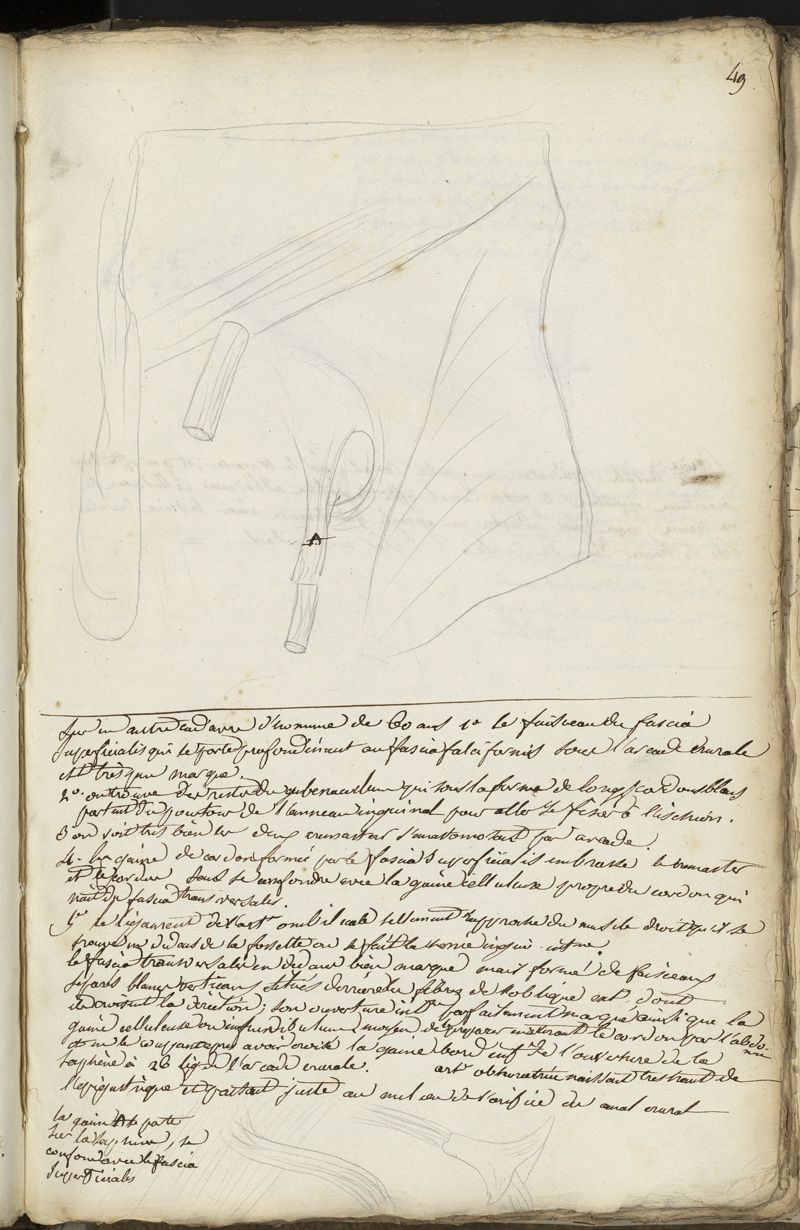 49
A
Sur un autre cadavre d'homme de 60 ans 1o le faisceau du fascia
superficialis qui se porte profondément au fascia falciformis sous l'arcade crurale
est très que marqué.
2o. on trouve des restes du gubernaculum qui sous la forme de longs cordons blancs
partent du pourtour de l'anneau inguinal pour aller se fixer à l'ischion.
3 on voit très bien les deux cremasters s'anastomosant par arcade.
4. la gaine du cordon formée par le fascia superficialis embrasse le cremaster
et le cordon sans se confondre avec la gaine celluleuse propre du cordon qui
nait du fascia transversalis.
5o le ligament de l'art. ombilicale tellement rapproché du muscle droit qu'il se
trouve en dedans de la fossette où se fait la hernie ingui. interne
le fascia transversalis en dedans bien marqué mais formé de faisceaux
séparés blancs verticaux situés derrière les fibres de l'oblique est dont
ils croisent la direction; son ouverture parfaitement marquée ainsi que la
gaine celluleuse ou infundibulum, moyen de en tirant le cordon par l'abdomen
avoir la gaine bord inf. de l'ouverture de la
saphène à 26 lig. de l'arcade crurale. art. obturatrice naissant très haut de
l'épigastrique et passant juste au milieu de l'orifice du canal crural
la gaine A se porte
sur la veine, se
confond avec le fascia
superficialis